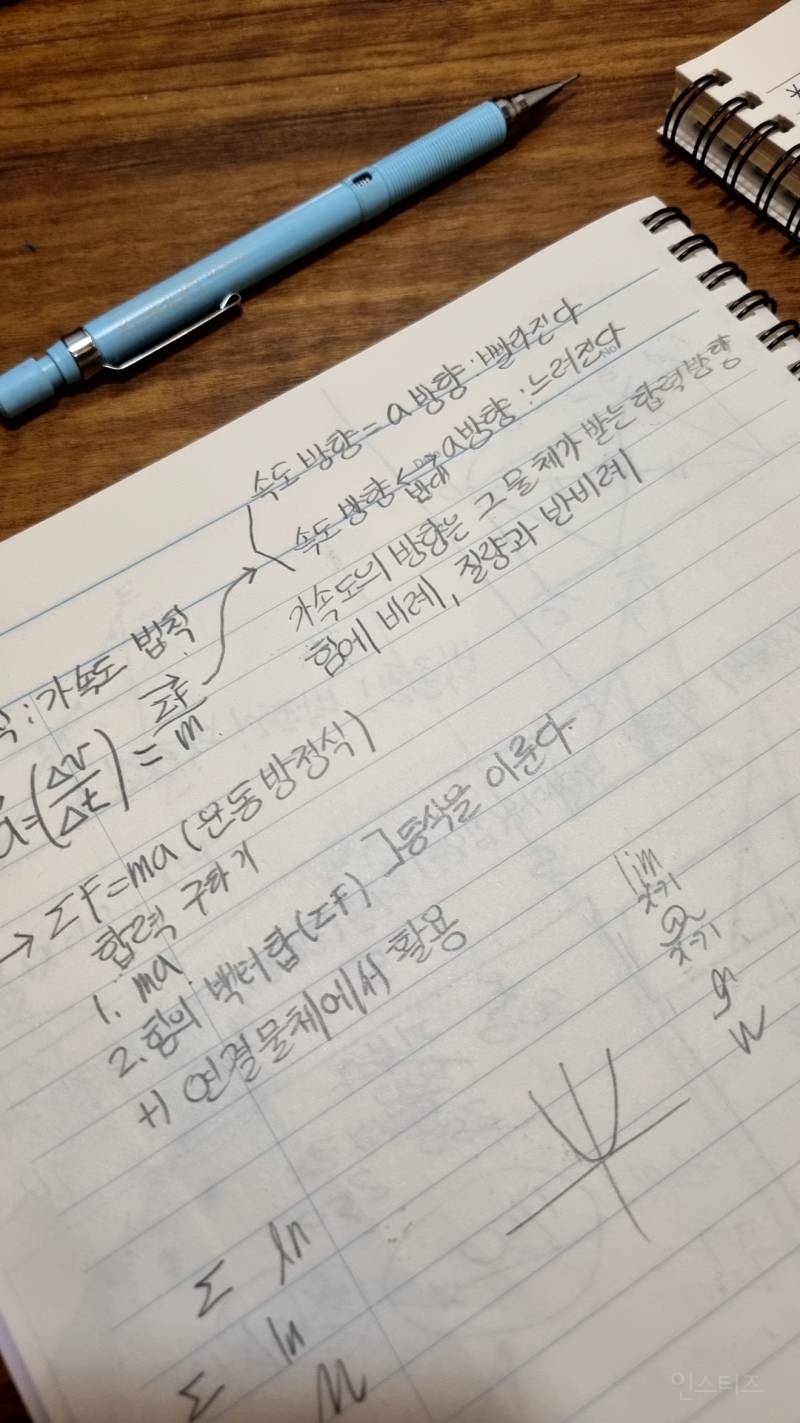 속도 방향 = a 방향 : 빨라진다
속도 방향 ↔ a방향 : 느려진다
반대
가속도의 방향은 그 물체가 받는 합력방향
힘에 비례, 질량과 반비례
식 : 가속도 법칙
a = (Δv/Δt) = ΣF/m
→ ΣF = ma (운동방정식)
합력 구하기
1. ma
2. 힘의 벡터합(ΣF) 그 등식을 이룬다.
+) 연결물체에서 활용
lim
x→1
x→1
Σ ln
Σ ln
인스티즈